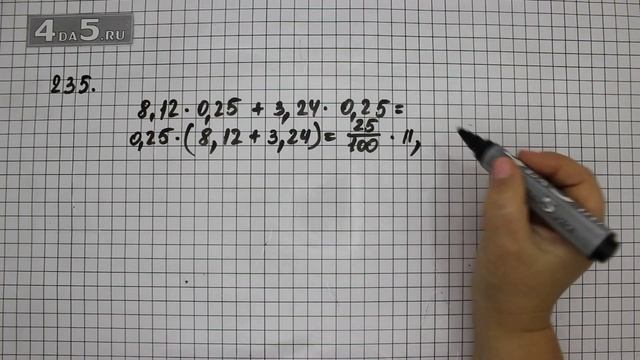 4DA5.RU
235.
8,12 · 0,25 + 3,24 · 0,25 =
0,25 · ( 8,12 + 3,24 ) = 25/100 · 11,